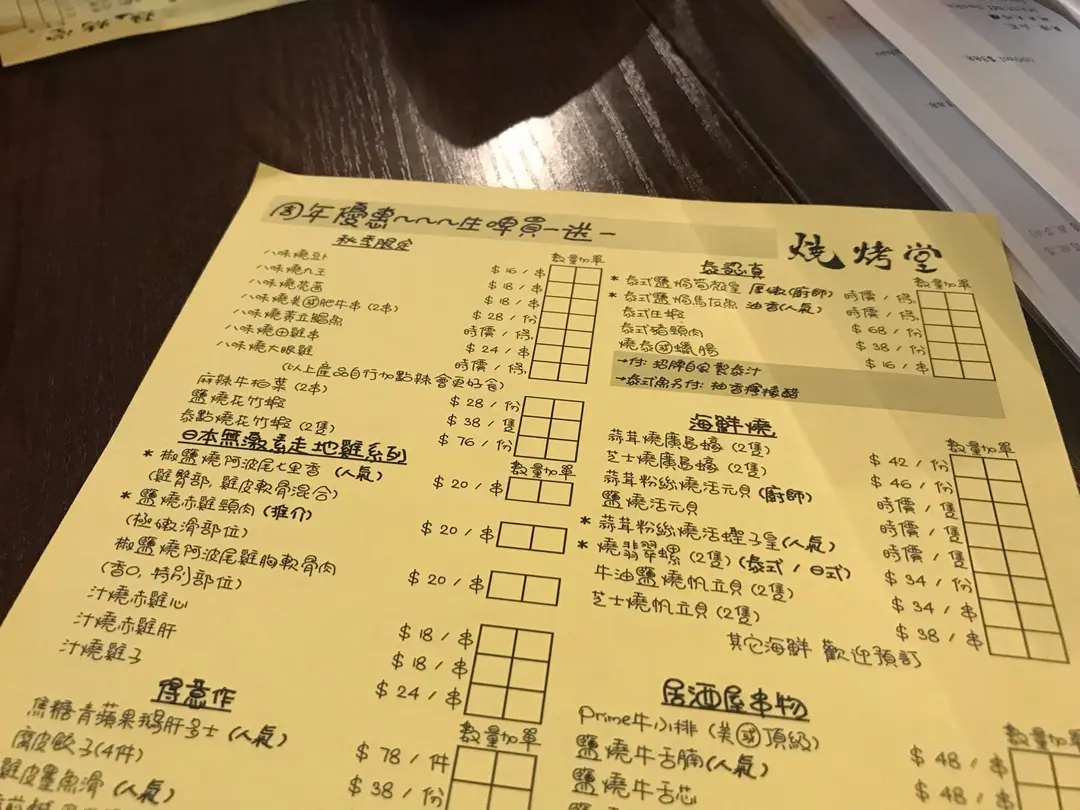 周年優惠~~~生啤買一送一
燒烤堂
秋季限定
數量加單
八味燒豆卜 $16/串
八味燒九王 $18/串
八味燒茄茵 $18/串
八味燒美國肥牛串(2串) $28/份
八味燒原立鯧魚 時價/條
八味燒田雞串 $24/串
八味燒大眼雞 時價/條
(以上產品自行加點辣會更好食)
麻辣牛柏葉(2串) $28/份
鹽燒花竹蝦 $38/隻
泰點燒花竹蝦(2隻) $76/份
日本無激素走地雞系列
數量加單
* 椒鹽燒阿波尾七里香(人氣) $20/串
(雞臀部, 雞皮軟骨混合)
* 鹽燒赤雞頸肉(推介) $20/串
(極嫩滑部位)
椒鹽燒阿波尾雞胸軟骨肉 $20/串
(香口, 特別部位)
汁燒赤雞心 $18/串
汁燒赤雞肝 $18/串
汁燒雞子 $24/串
得意作
數量加單
焦糖青蘋果鵝肝多士(人氣) $78/件
腐皮餃子(4件) $38/份
雞皮墨魚滑(人氣)
泰認真
數量加單
* 泰式鹽焗筍殼皇 厚嫩(廚師) 時價/條
* 泰式鹽焗馬友魚 油香(人氣) 時價/條
泰式生蝦 $68/份
泰式豬頸肉 $38/份
燒泰國蠟腸 $16/串
→付: 招牌自家製泰汁
→泰式魚另付: 柚香檸檬醋
海鮮燒
數量加單
蒜茸燒廣島蠔(2隻) $42/份
芝士燒廣島蠔(2隻) $46/份
蒜茸粉絲燒活元貝(廚師) 時價/隻
鹽燒活元貝 時價/隻
* 蒜茸粉絲燒活蟶子皇(人氣) 時價/隻
* 燒翡翠螺(2隻)(泰式/日式) $34/份
牛油鹽燒帆立貝(2隻) $34/串
芝士燒帆立貝(2隻) $38/串
其它海鮮 歡迎預訂
居酒屋串物
數量加單
Prime牛小排(美國頂級) $48/串
鹽燒牛舌腩(人氣) $48/串
鹽燒牛舌芯